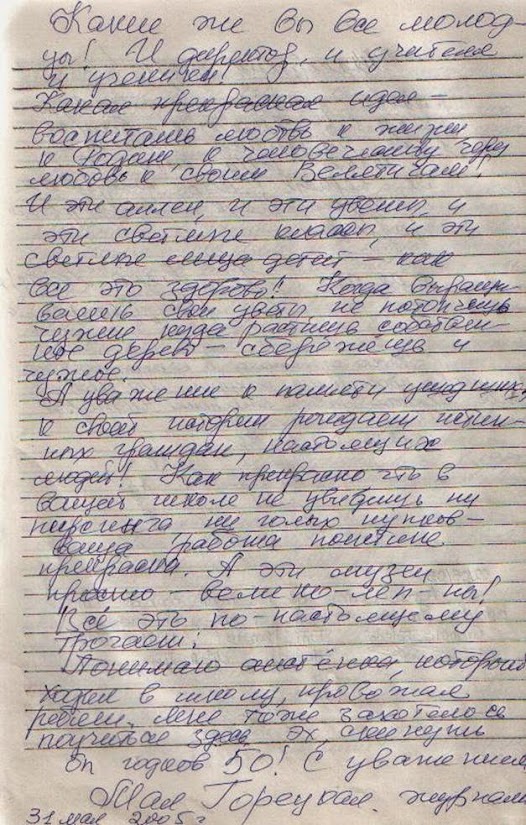 Какие же вы все молод-
цы! И директор, и учителя
и ученики!
Какая прекрасная идея -
воспитать любовь к жизни
к Родине к человечеству через
любовь к своим
И эти аллеи, и эти цветы, и
эти светлые классы, и эти
светлые лица детей - как
все это здорово! Когда выращи-
ваешь свои цветы не потопчешь
чужие когда растишь собствен-
ное дерево - сбережешь и
чужое.
А уважение к памяти ушедших,
к своей истории рождает истин-
ных граждан, настоящих
людей! Как прекрасно что в
вашей школе не увидишь ни
пирсинга ни голых пупков -
ваша работа поистине
прекрасна. А эти музеи
просто - велико-леп-ны!
Всё это по-настоящему
трогает!
Понимаю который
ходил в школу, провожая
ребят. Мне тоже захотелось
поучиться здесь эх, скинуть
бы годков 50! С уважением
Мая Горецкая. журнали
31 мая 2005 г